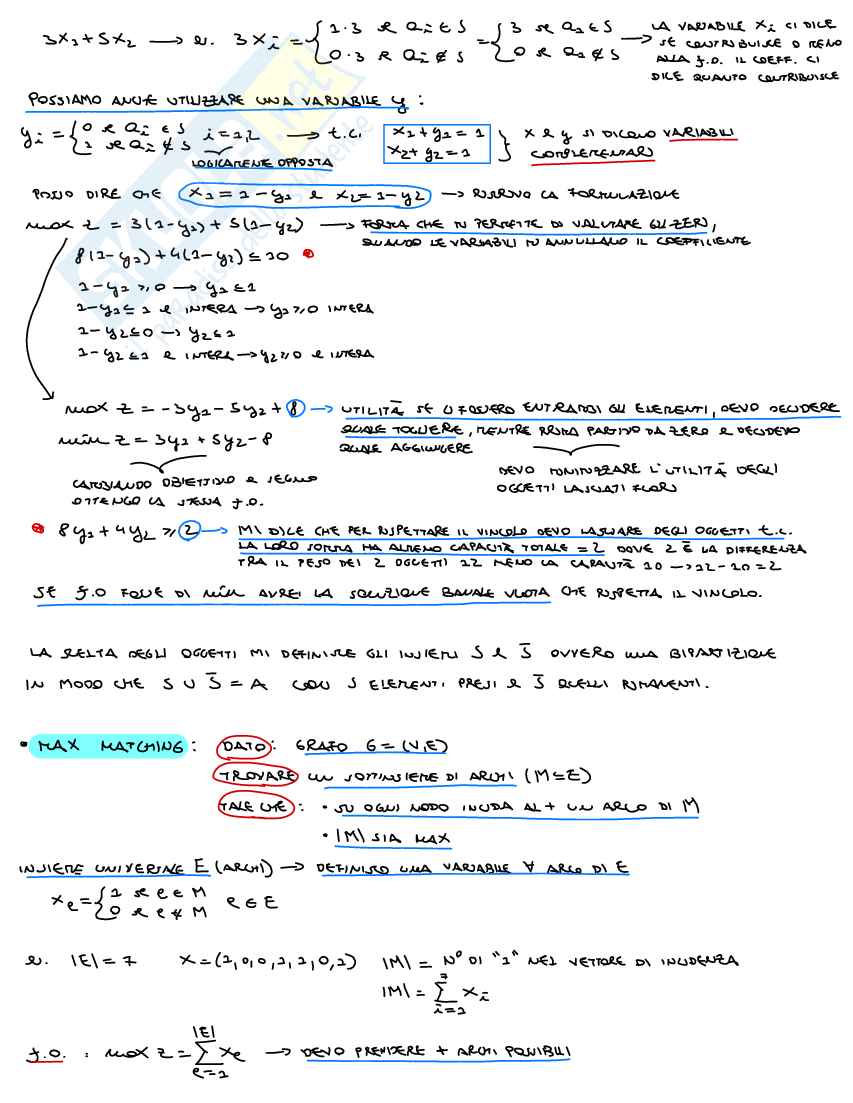 3x₁+5x₂ → es. 3xᵢ = {1·3 se aᵢ∈S 0·3 se aᵢ∉S = {3 se a₁∈S 0 se a₁∉S → LA VARIABILE xᵢ CI DICE
SE CONTRIBUISCE O MENO
ALLA f.o. IL COEFF. CI
DICE QUANTO CONTRIBUISCE
POSSIAMO ANCHE UTILIZZARE UNA VARIABILE y:
yᵢ = {0 se aᵢ∈S 1 se aᵢ∉S i=1,2 → t.c. x₁+y₁=1 x₂+y₂=1 } x e y SI DICONO VARIABILI
COMPLEMENTARI
LOGICAMENTE OPPOSTA
POSSO DIRE CHE x₁=1-y₁ e x₂=1-y₂ → RISCRIVO LA FORMULAZIONE
max z = 3(1-y₁)+5(1-y₂) → FORMA CHE MI PERMETTE DI VALUTARE GLI ZERI,
QUANDO LE VARIABILI MI ANNULLANO IL COEFFICIENTE
8(1-y₁)+4(1-y₂) ≤ 10
1-y₁ ≥ 0 → y₁ ≤ 1
1-y₁ ≤ 1 e INTERA → y₁ ≥ 0 INTERA
1-y₂ ≤ 0 → y₂ ≤ 1
1-y₂ ≤ 1 e INTERA → y₂ ≥ 0 e INTERA
max z = -3y₁-5y₂+8 → UTILITÀ SE CI FOSSERO ENTRAMBI GLI ELEMENTI, DEVO DECIDERE
QUALE TOGLIERE, MENTRE PRIMA PARTIVO DA ZERO E DECIDEVO
QUALE AGGIUNGERE
min z = 3y₁+5y₂-8
CAMBIANDO OBIETTIVO E SEGNO
OTTENGO LA STESSA f.o.
DEVO MINIMIZZARE L'UTILITÀ DEGLI
OGGETTI LASCIATI FUORI
8y₁+4y₂ ≥ 2 → MI DICE CHE PER RISPETTARE IL VINCOLO DEVO LASCIARE DEGLI OGGETTI t.c.
LA LORO SOMMA HA ALMENO CAPACITÀ TOTALE = 2 DOVE 2 È LA DIFFERENZA
TRA IL PESO DEI 2 OGGETTI 12 MENO LA CAPACITÀ 10 → 12-10=2
SE f.o FOSSE DI min AVREI LA SOLUZIONE BANALE VUOTA CHE RISPETTA IL VINCOLO.
LA SCELTA DEGLI OGGETTI MI DEFINISCE GLI INSIEMI S e S̄ OVVERO UNA BIPARTIZIONE
IN MODO CHE S ∪ S̄ = A CON S ELEMENTI PRESI e S̄ QUELLI RIMANENTI.
• MAX MATCHING: DATO: GRAFO G=(V,E)
TROVARE UN SOTTINSIEME DI ARCHI (M⊆E)
TALE CHE: • SU OGNI NODO INCIDA AL + UN ARCO DI M
• |M| SIA MAX
INSIEME UNIVERSALE E (ARCHI) → DEFINISCO UNA VARIABILE ∀ ARCO DI E
xₑ = {1 se e∈M 0 se e∉M e∈E
es. |E|=7 x=(1,0,0,1,1,0,1) |M| = N° DI "1" NEL VETTORE DI INCIDENZA
|M| = ∑ᵢ₌₁⁷ xᵢ
f.o. : max z = ∑ₑ₌₁^|E| xₑ → DEVO PRENDERE + ARCHI POSSIBILI